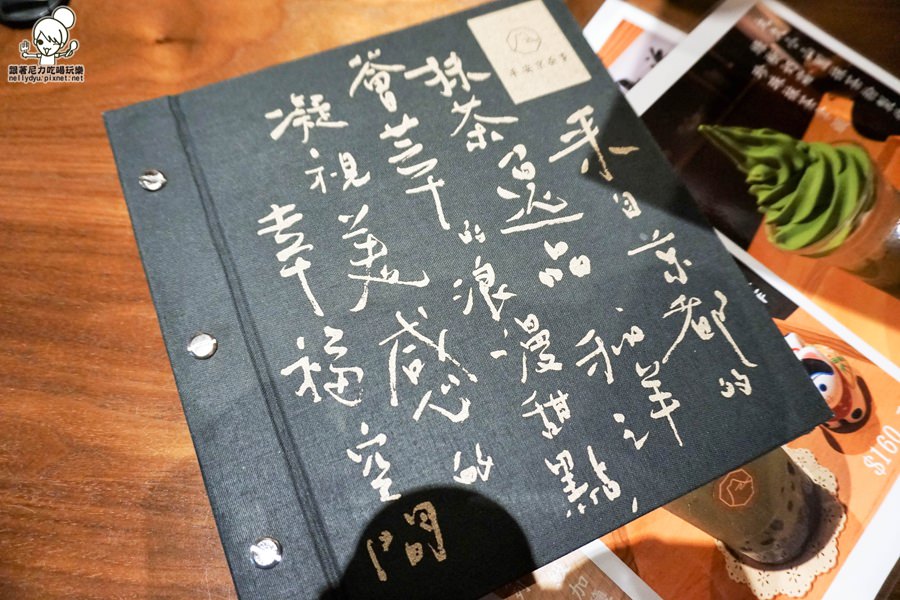 跟著尼力吃喝玩樂
nellydyu.pixnet.net
平安京茶事
來自京都的
抹茶選品和洋之
薈萃的浪漫甜點,
凝視美感的
幸福空間
$160
加